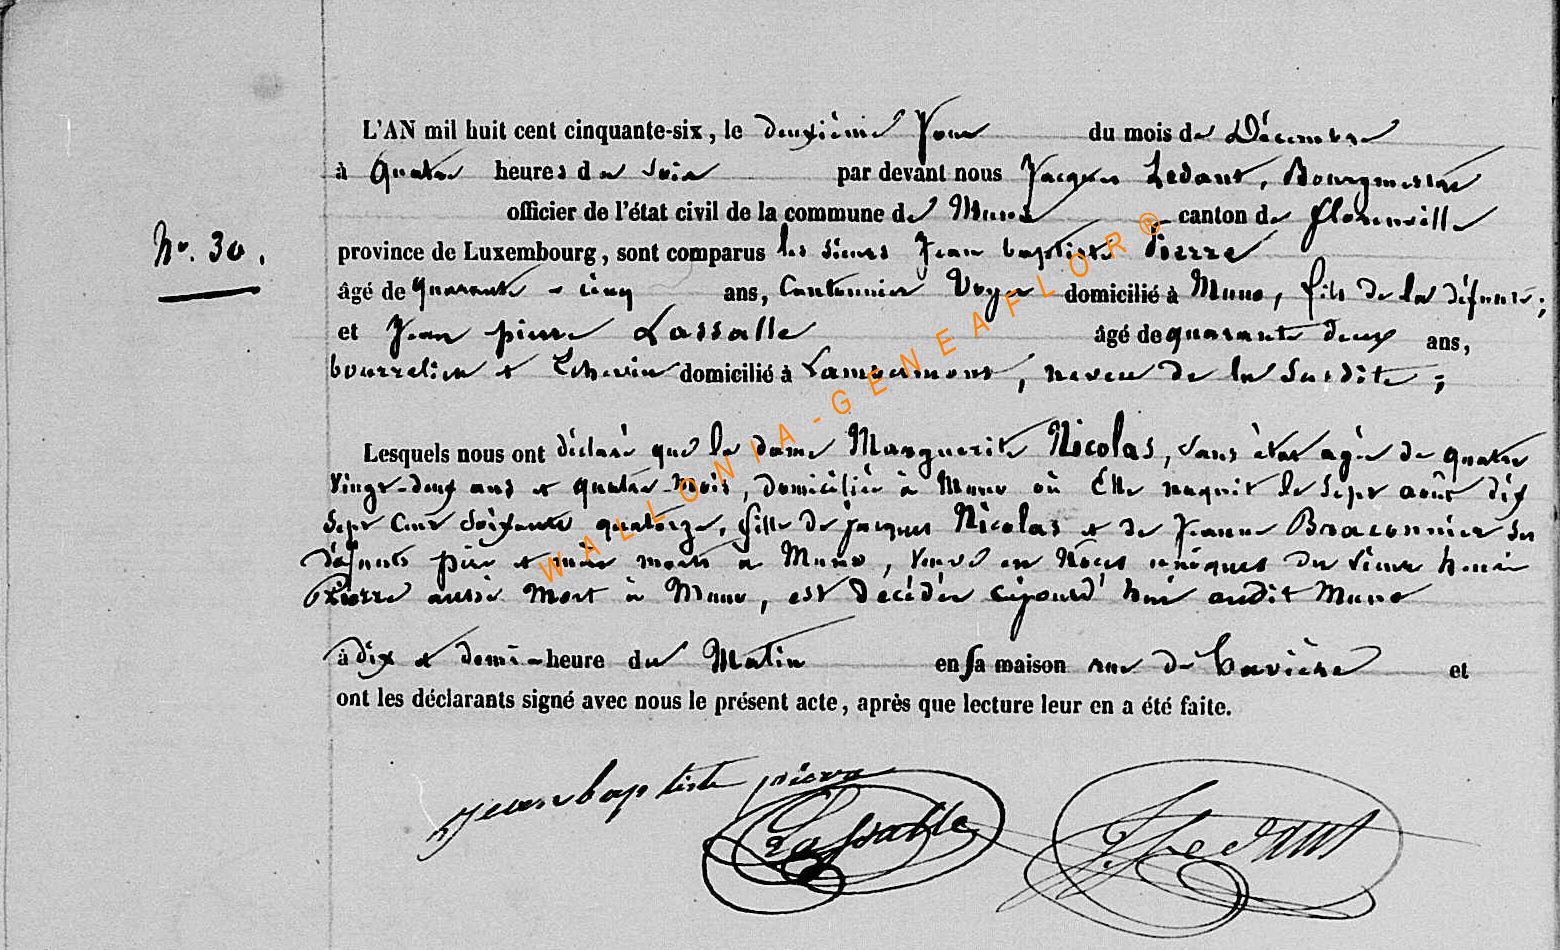 L'AN mil huit cent cinquante-six, le deuxième Jour du mois de Décembre
à Quatre heures du soir par devant nous Jacques Ledant, Bourgmestre
officier de l'état civil de la commune de Muno canton de florenville
No. 30.
province de Luxembourg, sont comparus les sieurs Jean baptiste Pierre
âgé de quarante-cinq ans, Cantonnier Voyer domicilié à Muno, fils de la défunte;
et Jean pierre Lassalle âgé de quarante deux ans,
bourrelier et Echevin domicilié à Lambermont, neveu de la susdite;
Lesquels nous ont déclaré que la dame Marguerite Nicolas, sans état agée de quatre
vingt-deux ans et quatre mois, domiciliée à Muno où Elle naquit le sept août dix
sept cent soixante quatorze, fille de jacques Nicolas et de Jeanne Braconnier ses
défunts père et mère morts à Muno, veuve en Noces uniques du sieur henri
Pierre aussi Mort à Muno, est décédée cejourd'hui audit Muno
à dix et demi-heure du Matin en sa maison rue de bavière et
ont les déclarants signé avec nous le présent acte, après que lecture leur en a été faite.
Jean baptiste pierre
Lassalle
J Ledant
WALLONIA-GENEAFLOR®